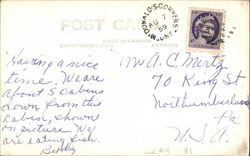 POST CARD
MADE IN CANADA
CORRESPONDENCE
McDONALDS CORNERS
AU 7
59
ONT.
Having a nice
time. We are
about 5 cabins
down from the
cabin, shown
on picture. We
are eating fish.
Mr A. C. Mertz
70 King St
Northumberland
Pa
U.S.A.